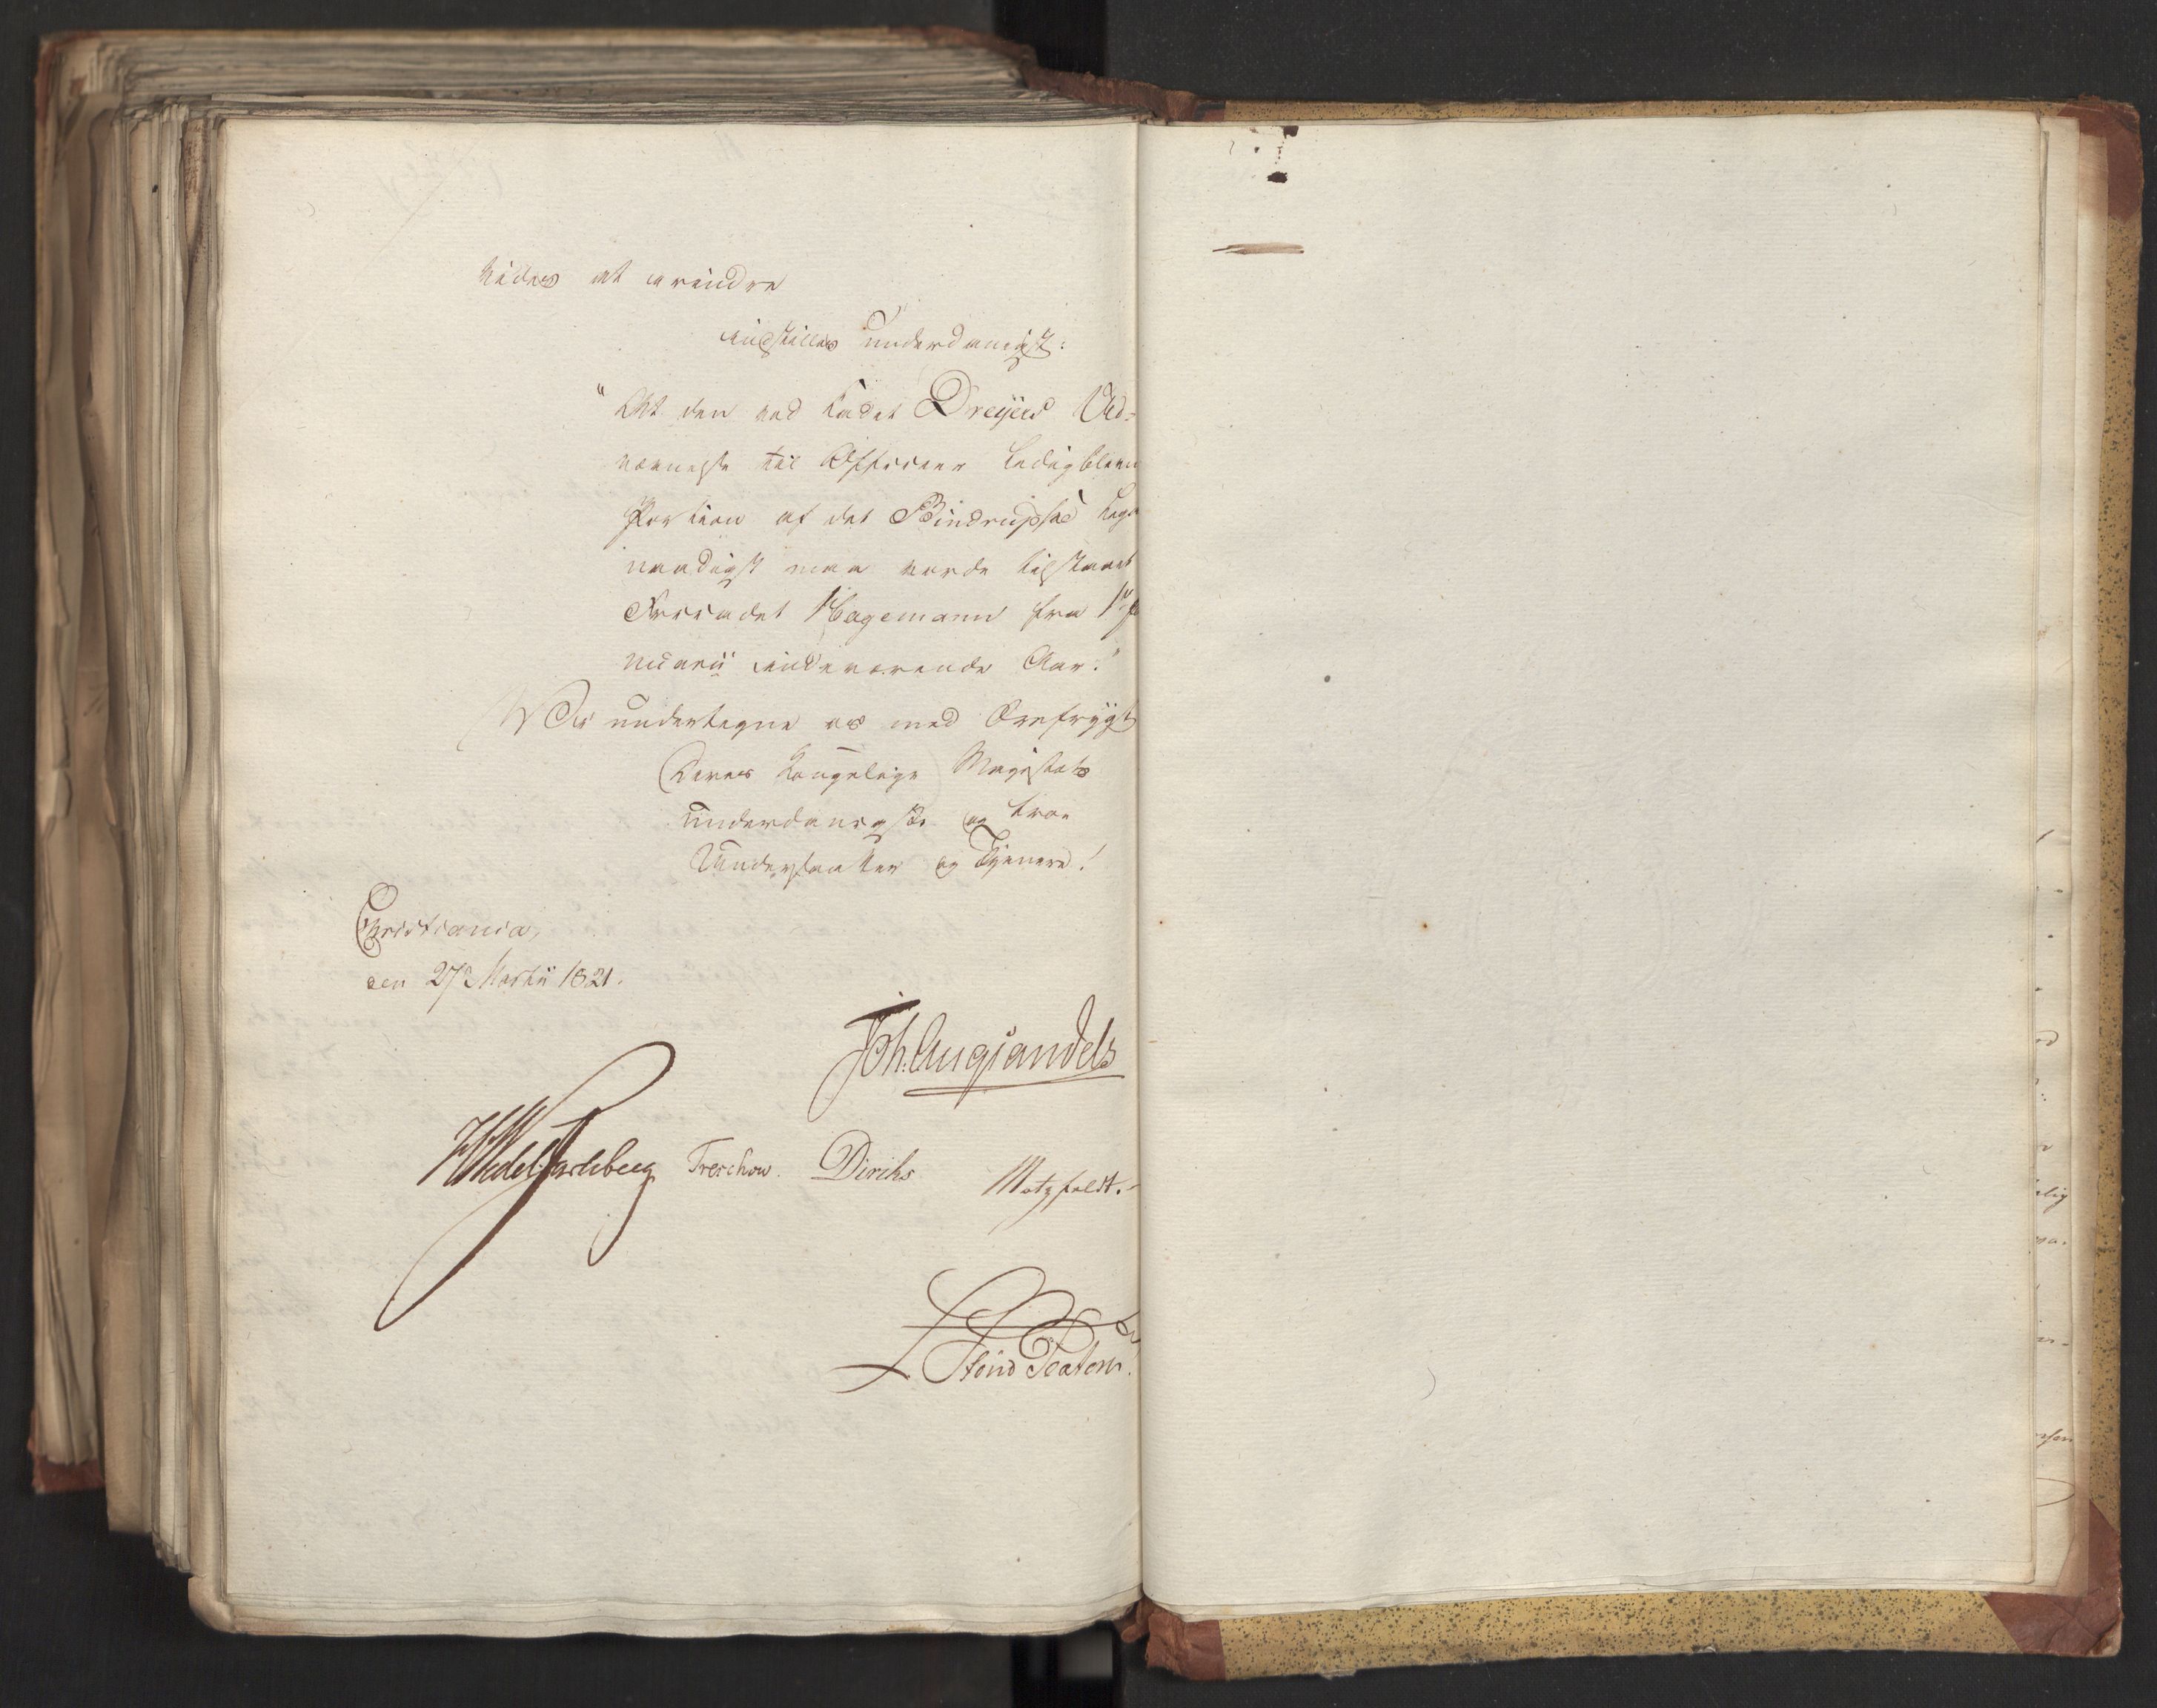 vides at erindre
indstilles underdanigst:
"At den ved Cadet Dreyers Ud-
nævnelse til Officeer ledigblevne
Portion af det Bindrupske Lega
naadigst maa vorde tilstaaet
Friecadet Hagemann fra 1ste Ja
nuarii indeværende Aar."
Vi undertegne os med Ærefrygt
Deres Kongelige Majestæts
underdanigste og troe
Undersaatter og Tjenere!
Christiania,
den 27de Martii 1821.
Joh. Aug Sandels
HWedel Jarlsberg Treschow. Diriks Motzfeldt.